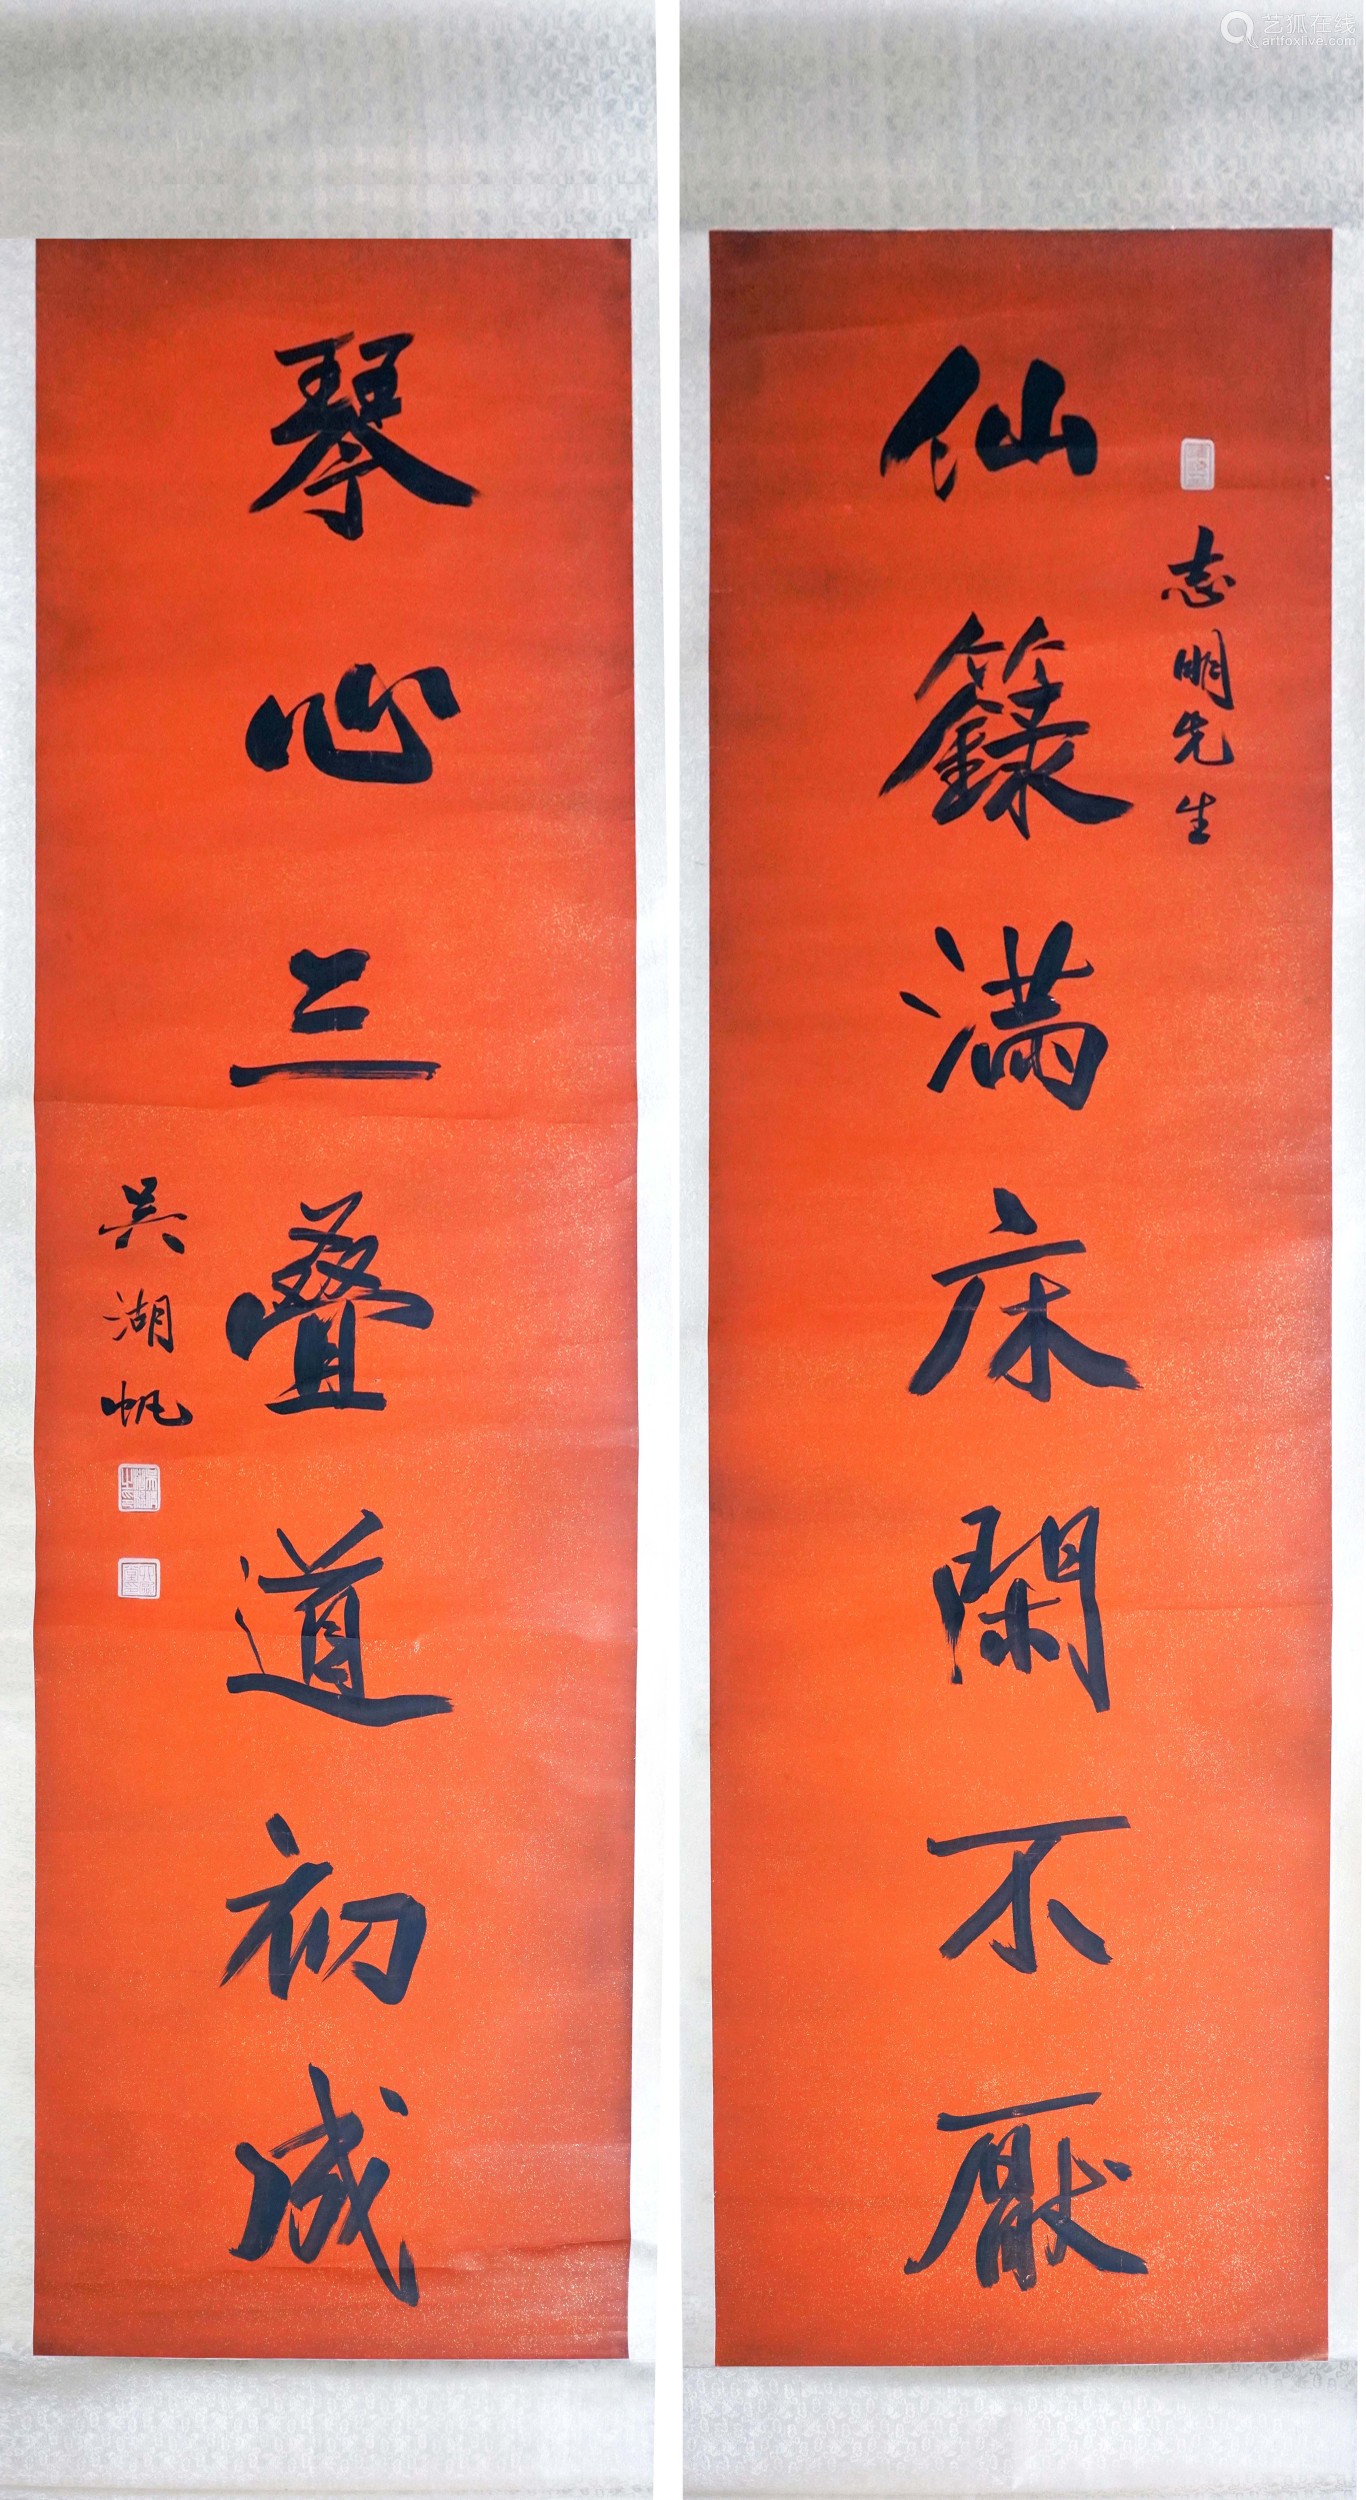 志明先生
仙籙满床閑不厭
琴心三叠道初成
吴湖帆
艺狐在线
artfoxlive.com